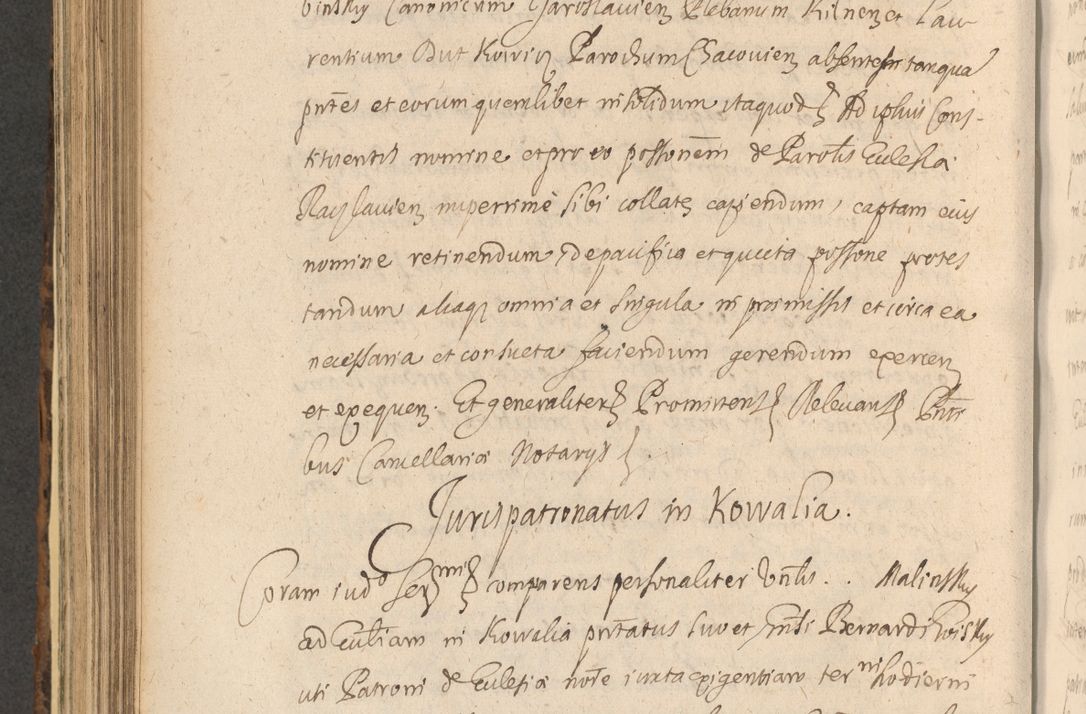 binsky Canonicum Jaroslavien Plebanum Kilnen et Lau-
rentium Dut Kowin Parochum Chacovien absentes tanqua
pntes et eorum quemlibet in solidum itaquod Ad ipsius Cons-
tituentis nomine et pro eo possonem de Paroˡis Ecclesia
Raislavien nuperrime sibi collate capiendum, captam eius
nomine retinendum, de pacifica et quieta possone protes
tandum aliaq omnia et singula in praemissis et circa ea
necessaria et consueta faciendum gerendum exercen
et exequen. Et generaliter Promittens Relevans Pntti
bus Cancellariae Notarys.
Jurispatronatus in Kowalia.
Coram iudo Ser comparens personaliter Vnlis .. Malinsky
ad Eccliam in Kowalia pntatus suo et Bernardi
uti Patroni de Ecclesia note iuxta exigentiam termni hodierni